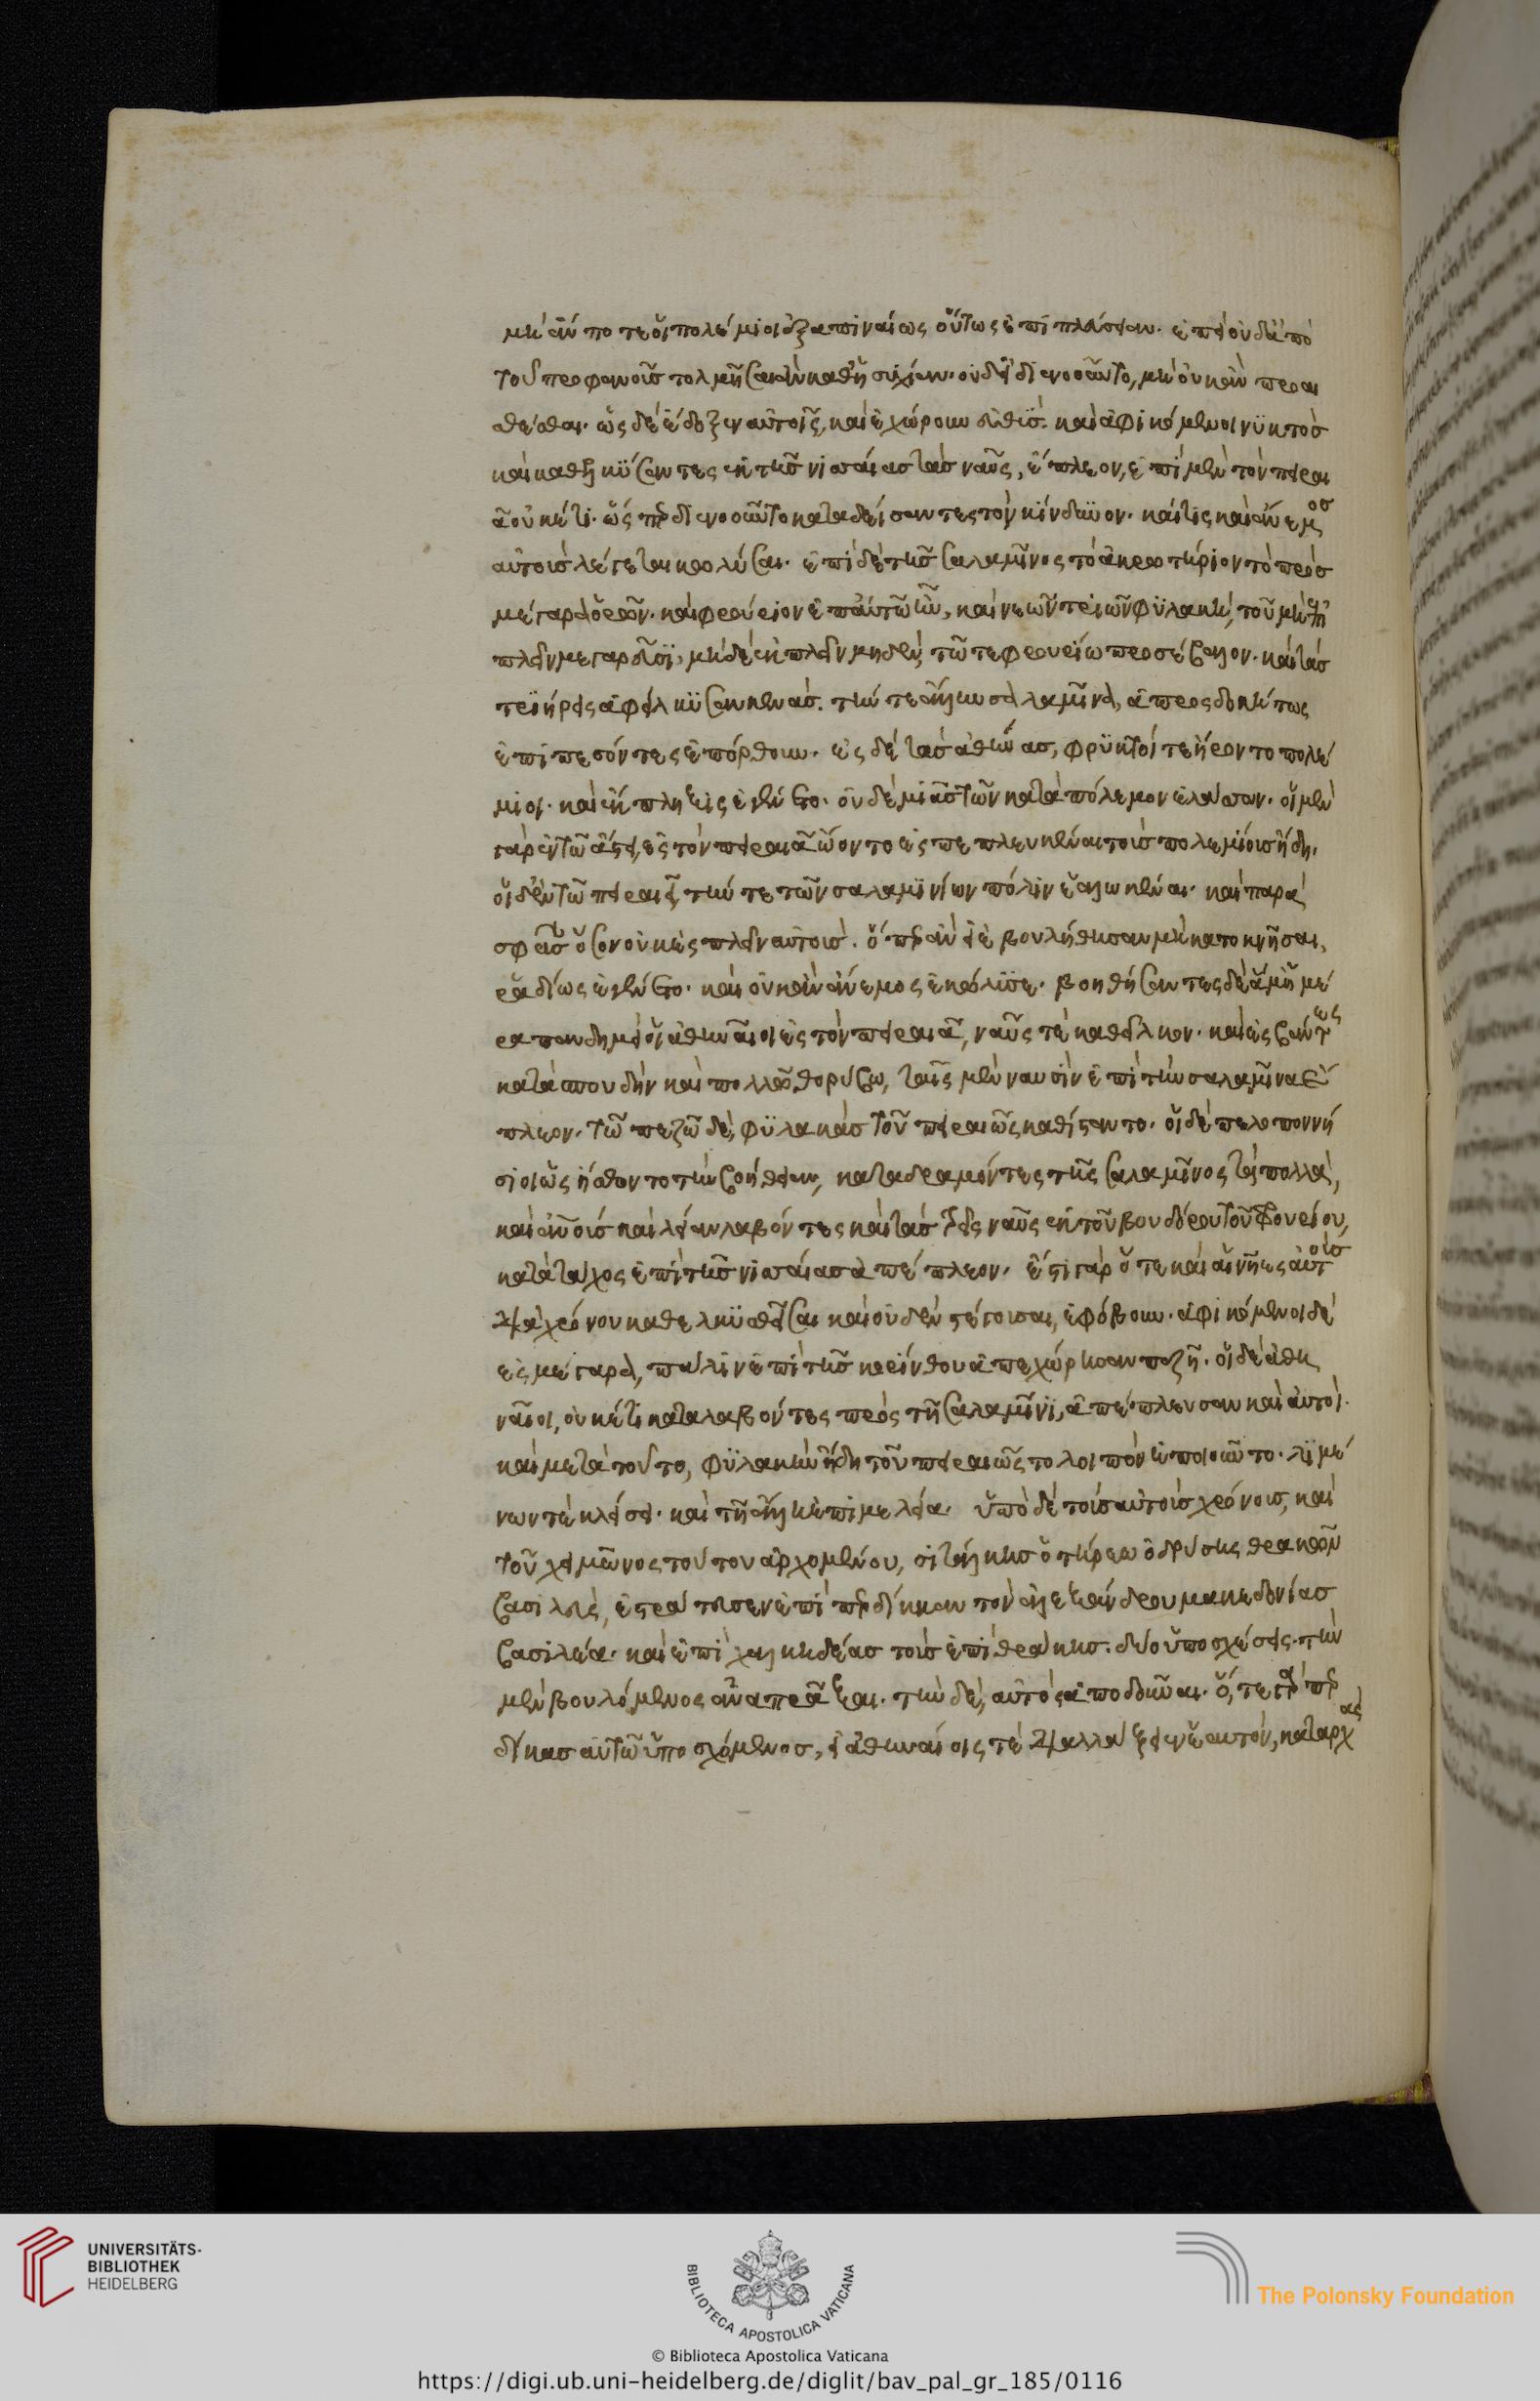 μὴ ἄν ποτε οἱ πολέμιοι ἐξαπιναίως οὕτως ἐπιπλεύσειαν. ἐπεὶ οὐδ' ἀπὸ
τοῦ προφανοῦς τολμῆσαι ἂν καθ' ἡσυχίαν. οὐδ' εἰ διενοοῦντο, μὴ οὐκ ἂν προαι
σθέσθαι. ὡς δὲ ἔδοξεν αὐτοῖς, καὶ ἐχώρουν εὐθύς. καὶ ἀφικόμενοι νυκτὸς
καὶ καθελκύσαντες ἐκ τῆς νισαίας τὰς ναῦς, ἔπλεον, ἐπὶ μὲν τὸν πειραι
ᾶ οὐκέτι. ὥσπερ διενοοῦντο καταδείσαντες τὸν κίνδυνον. καί τις καὶ ἄνεμος
αὐτοὺς λέγεται κωλῦσαι. ἐπὶ δὲ τῆς σαλαμῖνος τὸ ἀκρωτήριον τὸ πρὸς
μέγαρα ὁρῶν. καὶ φρούριον ἐπ' αὐτῶ ἦν, καὶ νεῶν τριῶν φυλακή, τοῦ μὴ ἐσ
πλεῖν μεγαρεῦσι, μηδὲ ἐκπλεῖν μηδέν. τῶ τε φρουρίω προσέβαλον. καὶ τὰς
τριήρεις ἀφείλκυσαν κενάς. τήν τε ἄλλην σαλαμῖνα, ἀπροσδοκήτως
ἐπιπεσόντες ἐπόρθουν. ἐς δὲ τὰς ἀθήνας, φρυκτοί τε ἤροντο πολέ
μιοι. καὶ ἔκπληξις ἐγένετο. οὐδεμιᾶς τῶν κατὰ πόλεμον ἐλάσσων. οἱ μὲν
γὰρ ἐν τῶ ἄστει, ἐς τὸν πειραιᾶ ὤοντο ἐσπεπλευκέναι τοὺς πολεμίους ἤδη.
οἱ δ' ἐν τῶ πειραιεῖ, τήν τε τῶν σαλαμινίων πόλιν ἑαλωκέναι. καὶ παρὰ
σφᾶς ὅσον οὐκ ἐσπλεῖν αὐτούς. ὅπερ ἂν εἰ ἐβουλήθησαν μὴ κατοκνῆσαι,
ῥαδίως ἐγένετο. καὶ οὐκ ἂν ἄνεμος ἐκώλυσε. βοηθήσαντες δὲ ἅμ' ἡμέ
ρα πανδημεὶ οἱ ἀθηναῖοι ἐς τὸν πειραιᾶ, ναῦς τε καθεῖλκον. καὶ ἐσβάντες
κατὰ σπουδὴν καὶ πολλῶ θορύβω, ταῖς μὲν ναυσὶν ἐπὶ τὴν σαλαμῖνα ἔ
πλεον. τῶ πεζῶ δέ, φυλακὰς τοῦ πειραιῶς καθίσταντο. οἱ δὲ πελοποννή
σιοι ὡς ἤσθοντο τὴν βοήθειαν, καταδραμόντες τῆς σαλαμῖνος τὰ πολλά,
καὶ ἀνθρώπους καὶ λείαν λαβόντες καὶ τὰς τρεῖς ναῦς ἐκ τοῦ βουδόρου τοῦ φρουρίου,
κατὰ τάχος ἐπὶ τῆς νισαίας ἀπέπλεον. ἔστι γὰρ ὅτε καὶ αἱ νῆες αὐτοὺς
διὰ χρόνου καθελκυσθεῖσαι καὶ οὐδὲν στέγουσαι, ἐφόβουν. ἀφικόμενοι δὲ
ἐς μέγαρα, πάλιν ἐπὶ τῆς κορίνθου ἀπεχώρησαν πεζῆ. οἱ δὲ ἀθη
ναῖοι, οὐκέτι καταλαβόντες πρὸς τῆ σαλαμῖνι, ἀπέπλευσαν καὶ αὐτοί.
καὶ μετὰ τοῦτο, φυλακὴν ἤδη τοῦ πειραιῶς τὸ λοιπὸν ἐποιοῦντο. λιμέ
νων τε κλείσει. καὶ τῆ ἄλλη ἐπιμελεία. ὑπὸ δὲ τοὺς αὐτοὺς χρόνους, καὶ
τοῦ χειμῶνος τούτου ἀρχομένου, σιτάλκης ὁ τήρεω ὀδρύσης θρακῶν
βασιλεύς, ἐστράτευσεν ἐπὶ περδίκκαν τὸν ἀλεξάνδρου μακεδονίας
βασιλέα. καὶ ἐπὶ χαλκιδέας τοὺς ἐπὶ θράκης. δύο ὑποσχέσεις. τὴν
μὲν βουλόμενος ἀναπρᾶξαι. τὴν δέ, αὐτὸς ἀποδοῦναι. ὅ, τε γὰρ περ
δίκκας αὐτῶ ὑποσχόμενος, εἰ ἀθηναίοις τε διαλλάξειεν ἑαυτόν, καταρχὰς
UNIVERSITÄTS-
BIBLIOTHEK
HEIDELBERG
BIBLIOTECA APOSTOLICA VATICANA
The Polonsky Foundation
© Biblioteca Apostolica Vaticana
https://digi.ub.uni-heidelberg.de/diglit/bav_pal_gr_185/0116